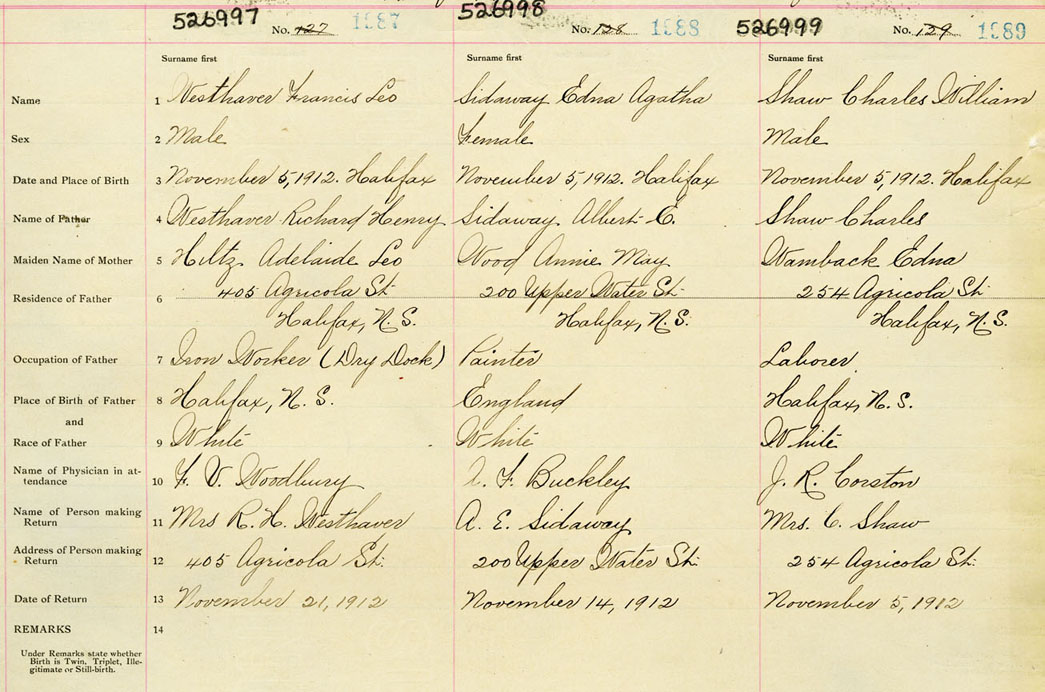 526997 526998 526999
No. 127 1387 No. 128 1388 No. 129 1389
Surname first Surname first Surname first
Name 1 Westhaver Francis Leo Sidaway Edna Agatha Shaw Charles William
Sex 2 Male Female Male
Date and Place of Birth 3 November 5, 1912. Halifax November 5, 1912. Halifax November 5, 1912. Halifax
Name of Father 4 Westhaver Richard Henry Sidaway Albert E. Shaw Charles
Maiden Name of Mother 5 Hiltz Adelaide Leo Wood Annie May Wamback Edna
Residence of Father 6 405 Agricola St. 200 Upper Water St. 254 Agricola St.
Halifax, N.S. Halifax, N.S. Halifax, N.S.
Occupation of Father 7 Iron Worker (Dry Dock) Painter Laborer.
Place of Birth of Father 8 Halifax, N.S. England Halifax, N.S.
and
Race of Father 9 White White White
Name of Physician in at-
tendance 10 F. V. Woodbury A. F. Buckley J. R. Corston
Name of Person making
Return 11 Mrs R. H. Westhaver A. E. Sidaway Mrs. C. Shaw
Address of Person making
Return 12 405 Agricola St. 200 Upper Water St. 254 Agricola St.
Date of Return 13 November 21, 1912 November 14, 1912 November 5, 1912
REMARKS 14
Under Remarks state whether
Birth is Twin, Triplet, Ille-
gitimate or Still-birth.